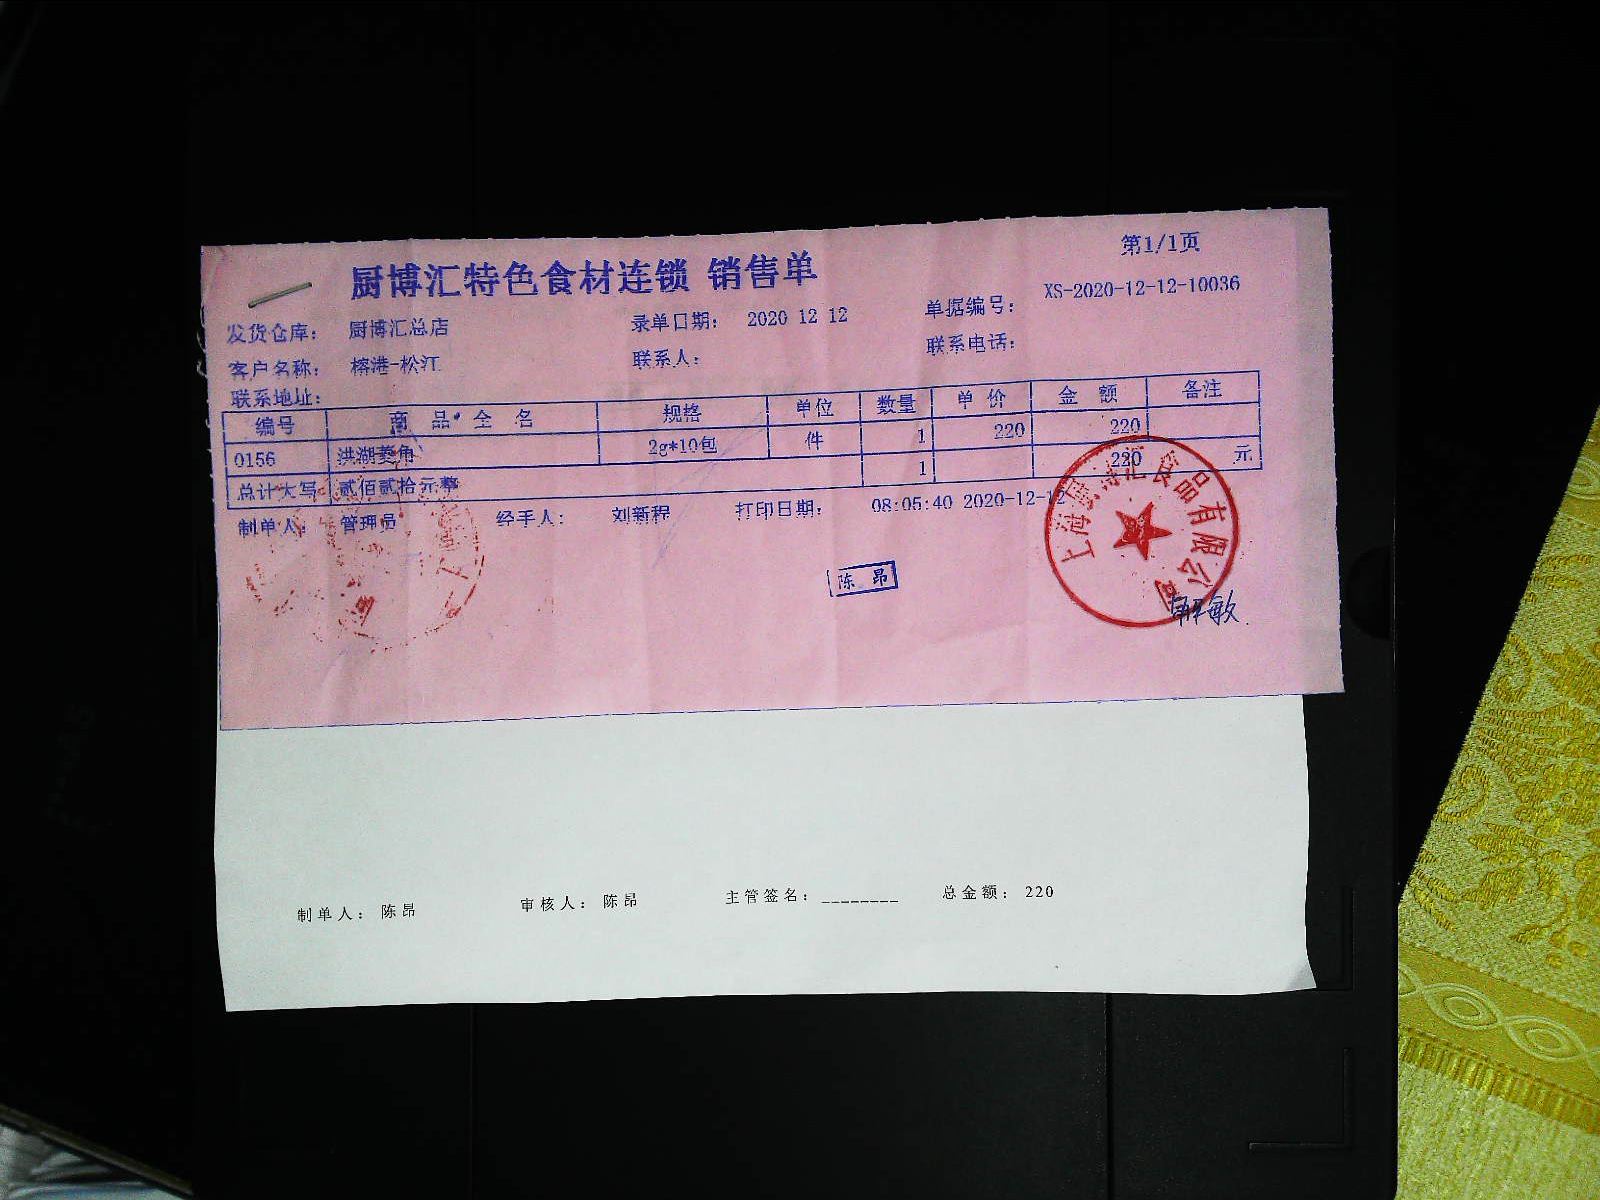 第1/1页
厨博汇特色食材连锁 销售单
发货仓库： 厨博汇总店 录单日期： 2020 12 12 单据编号： XS-2020-12-12-10036
客户名称： 榕港-松江 联系人： 联系电话：
联系地址：
编号 商品全名 规格 单位 数量 单价 金额 备注
0156 洪湖菱角 2g*10包 件 1 220 220
总计大写 贰佰贰拾元整 1 220 元
制单人： 管理员 经手人： 刘新程 打印日期： 08:05:40 2020-12-12
上海厨博汇食品有限公司
陈 昂
制单人： 陈昂 审核人： 陈昂 主管签名：________ 总金额： 220